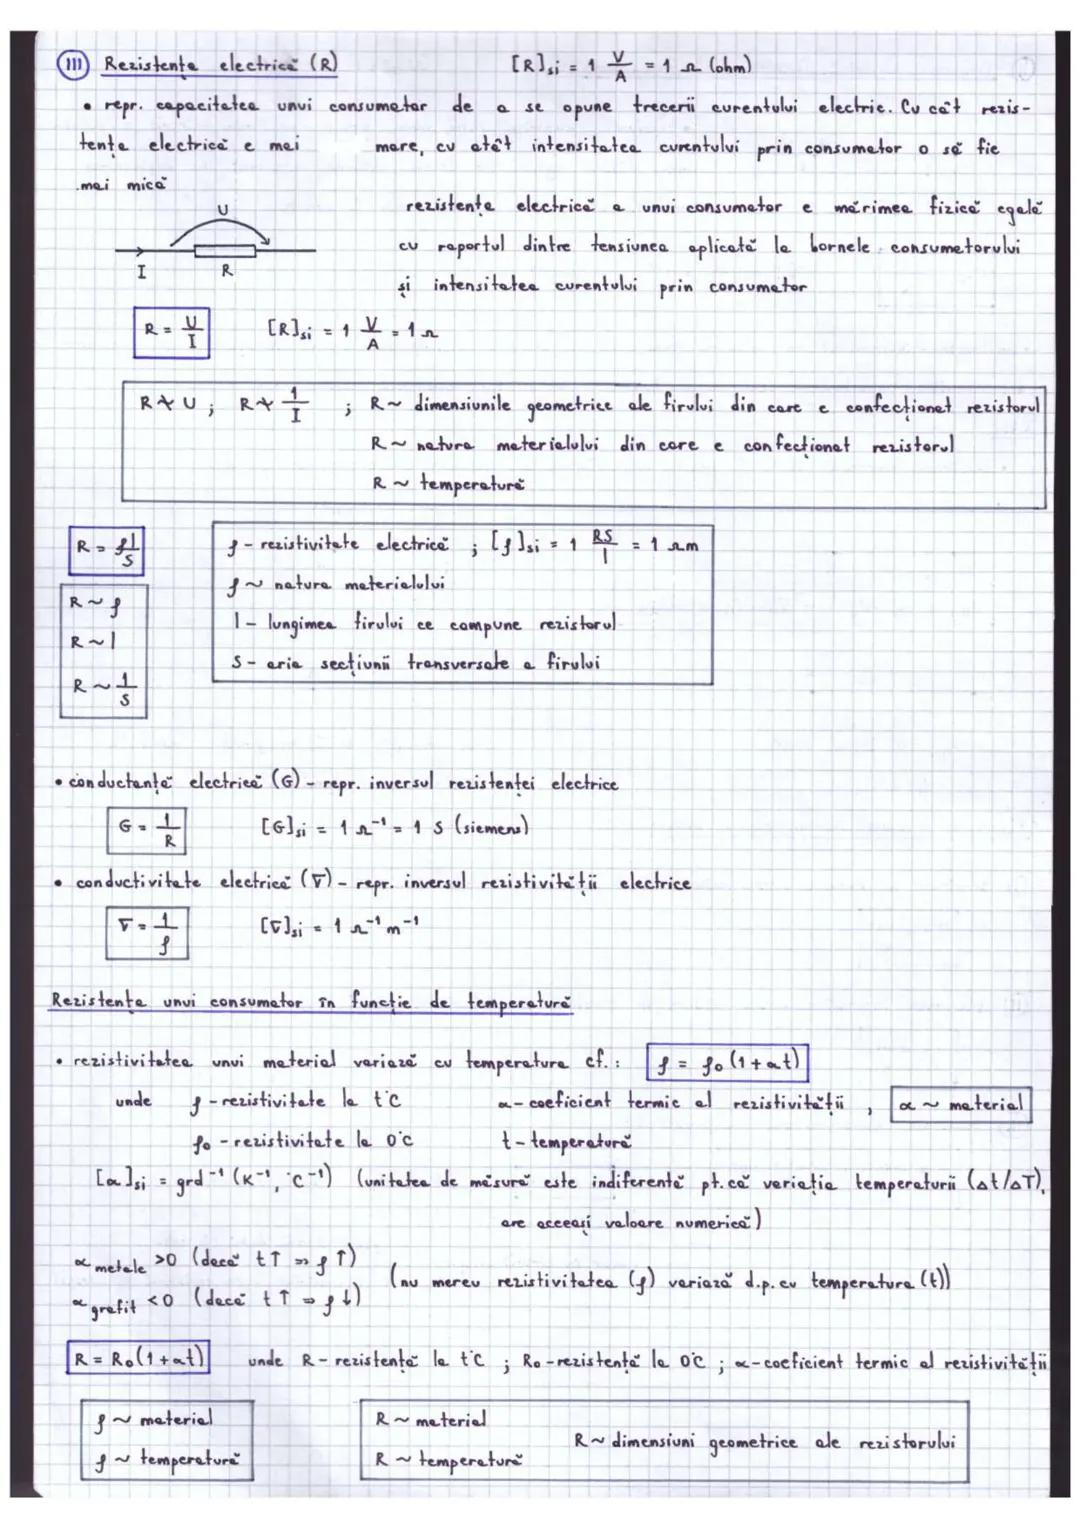 III Rezistența electrică (R) [R]si = 1 V/A = 1 Ω (ohm)
• repr. capacitatea unui consumator de a se opune trecerii curentului electric. Cu cât rezis-
tența electrică e mai mare, cu atât intensitatea curentului prin consumator o să fie
mai mică
U
I R
rezistența electrică a unui consumator e mărimea fizică egală
cu raportul dintre tensiunea aplicată la bornele consumatorului
și intensitatea curentului prin consumator
R = U/I [R]si = 1 V/A = 1 Ω
R ≁ U ; R ≁ 1/I ; R ~ dimensiunile geometrice ale firului din care e confecționat rezistorul
R ~ natura materialului din care e confecționat rezistorul
R ~ temperatură
R = ρl/S
R ~ ρ
R ~ l
R ~ 1/S
ρ - rezistivitate electrică ; [ρ]si = 1 RS/l = 1 Ωm
ρ ~ natura materialului
l - lungimea firului ce compune rezistorul
S - aria secțiunii transversale a firului
• conductanță electrică (G) - repr. inversul rezistenței electrice
G = 1/R [G]si = 1 Ω⁻¹ = 1 S (siemens)
• conductivitate electrică (σ) - repr. inversul rezistivității electrice
σ = 1/ρ [σ]si = 1 Ω⁻¹m⁻¹
Rezistența unui consumator în funcție de temperatură
• rezistivitatea unui material variază cu temperatura cf.: ρ = ρ₀(1+αt)
unde ρ - rezistivitate la t°C α - coeficient termic al rezistivității , α ~ material
ρ₀ - rezistivitate la 0°C t - temperatură
[α]si = grd⁻¹ (K⁻¹, °C⁻¹) (unitatea de măsură este indiferentă pt. că variația temperaturii (Δt/ΔT),
are aceeași valoare numerică)
α metale >0 (dacă t↑ ⇒ ρ↑)
α grafit <0 (dacă t↑ ⇒ ρ↓)
(nu mereu rezistivitatea (ρ) variază d.p. cu temperatura (t))
R = R₀(1+αt) unde R - rezistență la t°C ; R₀ - rezistență la 0°C ; α - coeficient termic al rezistivității
ρ ~ material
ρ ~ temperatură
R ~ material
R ~ temperatură
R ~ dimensiuni geometrice ale rezistorului